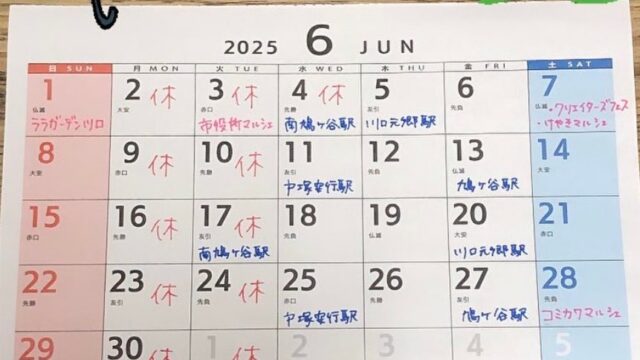 2025 6 JUN
日 SUN 月 MON 火 TUE 水 WED 木 THU 金 FRI 土 SAT
1 2 休 3 休 4 休 5 6 7
仏滅 大安 赤口 先勝 友引 先負 仏滅 ・クリエイターズフェス
ララガーデン川口 市役所マルシェ 南鳩ヶ谷駅 川口元郷駅 ・けやきマルシェ
8 9 休 10 休 11 12 13 14
大安 赤口 先勝 友引 先負 仏滅 大安
戸塚安行駅 鳩ヶ谷駅
15 16 休 17 休 18 19 20 21
赤口 先勝 友引 先負 仏滅 大安 赤口
南鳩ヶ谷駅 川口元郷駅
22 23 休 24 休 25 26 27 28
先勝 友引 先負 大安 赤口 先勝 友引
戸塚安行駅 鳩ヶ谷駅 コミカワマルシェ
29 30 休 1 2 3 4 5